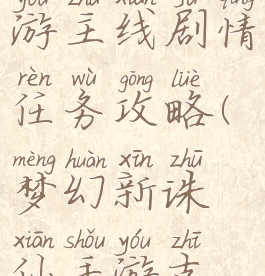 yóu zhǔ xiàn jù qíng
游主线剧情
rèn wù gōng lüè
任务攻略(
mèng huàn xīn zhū
梦幻新诛
xiān shǒu yóu zhī
仙手游支